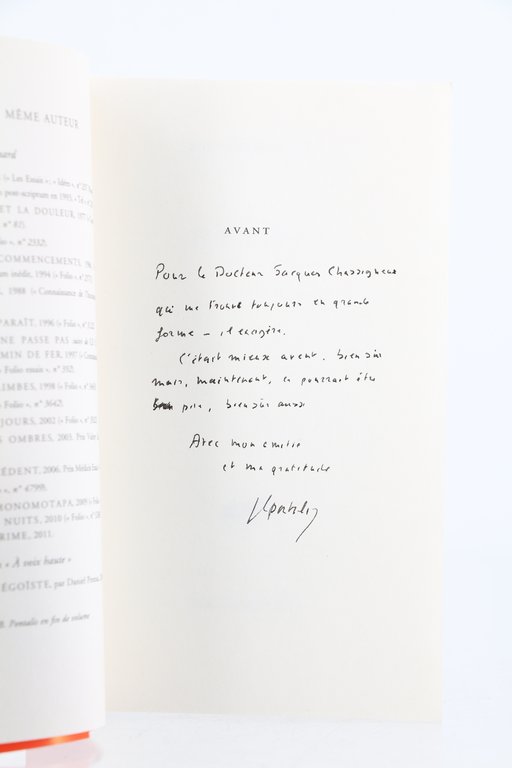 MÊME AUTEUR
(« Les Essais »; « Idées », n° 25
post-scriptum en 1993, « Tel »
ET LA DOULEUR, 1977
n° 82).
», n° 2332).
COMMENCEMENTS,
inédit, 1994 (« Folio », n°
1988 (« Connaissance de
PARAÎT, 1996 (« Folio », n°
NE PASSE PAS
MIN DE FER, 1997
Folio essais », n° 392).
LIMBES, 1998 (« Folio », n°
« Folio », n° 3642).
JOURS, 2002 (« Folio », n°
S OMBRES, 2003. Prix
ÉDENT, 2006. Prix Médicis
», n° 4799).
RONOMOTAPA, 2009
NUITS, 2010 (« Folio », n°
RIME, 2011.
« À voix haute »
ÉGOÏSTE, par Daniel
B. Pontalis en fin de volume
AVANT
Pour le Docteur Jacques Chassigneux
qui me trouve toujours en grande
forme – il exagère.
C'était mieux avant, bien sûr
mais, maintenant, ça pourrait être
pire, bien sûr aussi
Avec mon amitié
et ma gratitude
JBPontalis